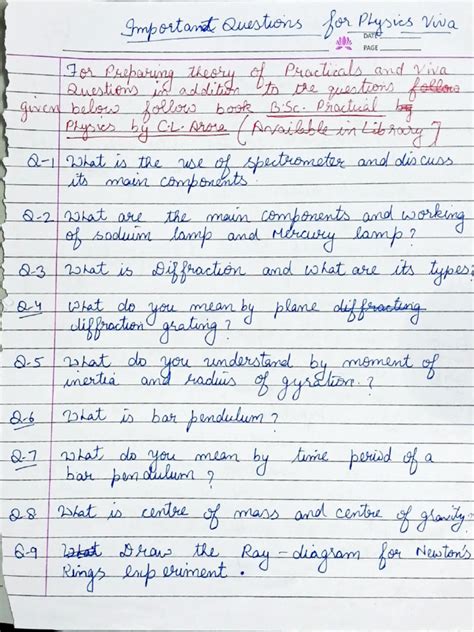 Important Questions for Physics Viva
DATE
PAGE
For Preparing theory of Practicals and Viva
Questions in addition to the questions follow
given below follow book B.Sc. Practical by
Physics by C.L. Arora (Available in Library)
Q-1 What is the use of spectrometer and discuss
its main components.
Q-2 What are the main components and working
of soduim lamp and Mercury lamp?
Q-3 What is Diffraction and what are its types?
Q-4 What do you mean by plane diffracting
diffraction grating?
Q-5 What do you understand by moment of
inertia and radius of gyration.?
Q-6 What is bar pendulum?
Q-7 What do you mean by time period of a
bar pendulum?
Q-8 What is centre of mass and centre of gravity.
Q-9 What Draw the Ray-diagram for Newton's
Rings experiment.